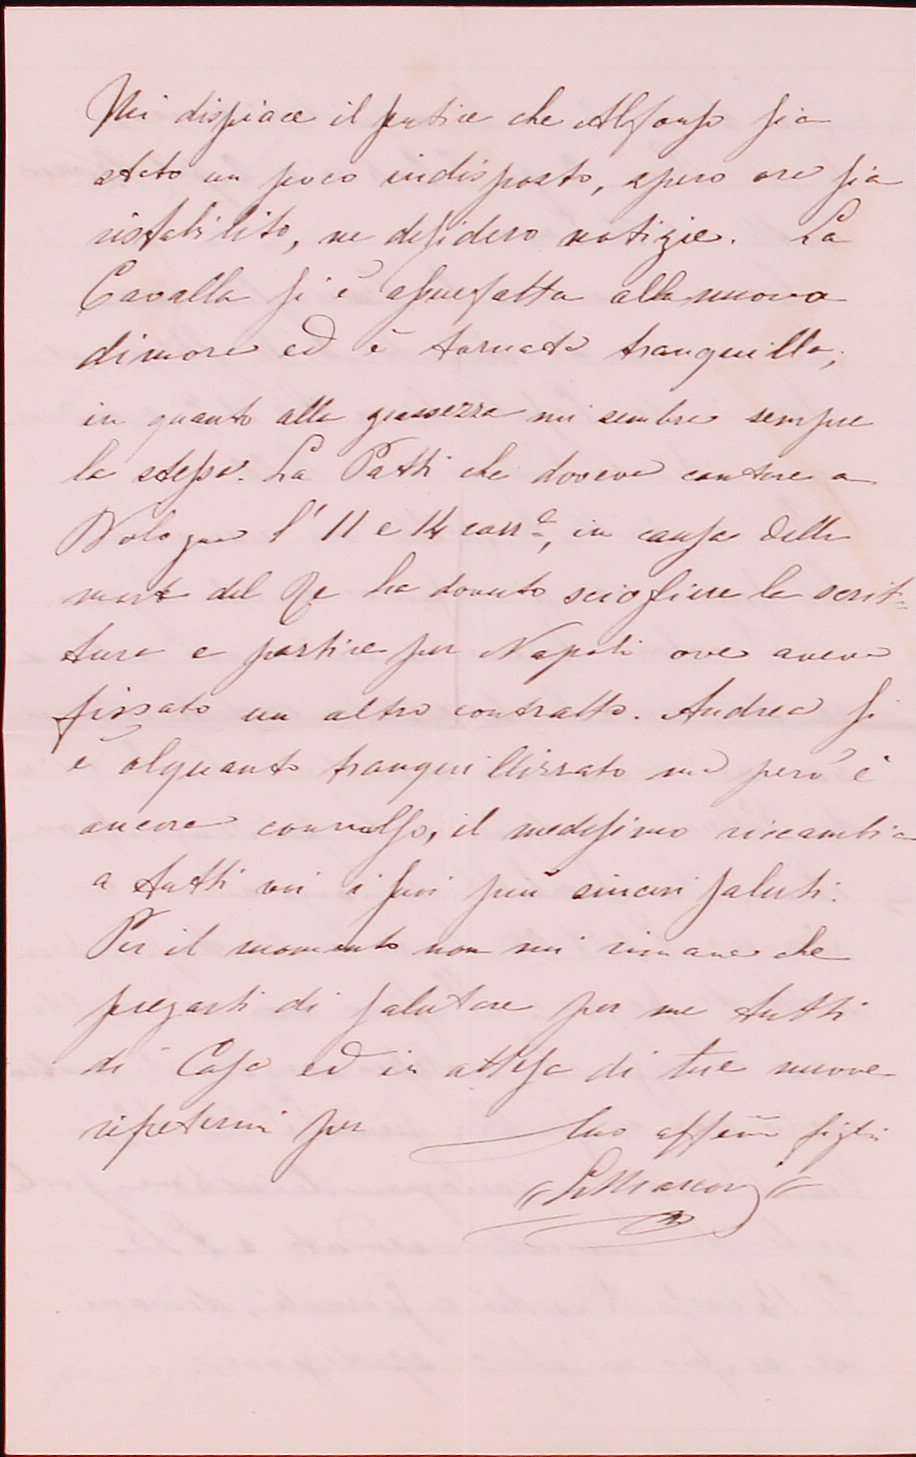 Mi dispiace il sentire che Alfonso sia
stato un poco indisposto, spero ora sia
ristabilito, ne desidero notizie. La
Cavalla si è assuefatta alla nuova
dimora ed è tornata tranquilla,
in quanto alla grassezza mi sembra sempre
la stessa. La Patti che doveva cantare a
Bologna l' 11 e 14 corr.e, in causa della
morte del Re ha dovuto sciogliere la scrit=
tura e partire per Napoli ove aveva
fissato un altro contratto. Andrea si
è alquanto tranquillizzato ma però è
ancora convulso, il medesimo riccambia
a tutti voi i suoi più sinceri saluti.
Per il momento non mi rimane che
pregarti di salutare per me tutti
di Casa ed in attesa di tue nuove
ripetermi per
tuo affemo figlio
Marconi